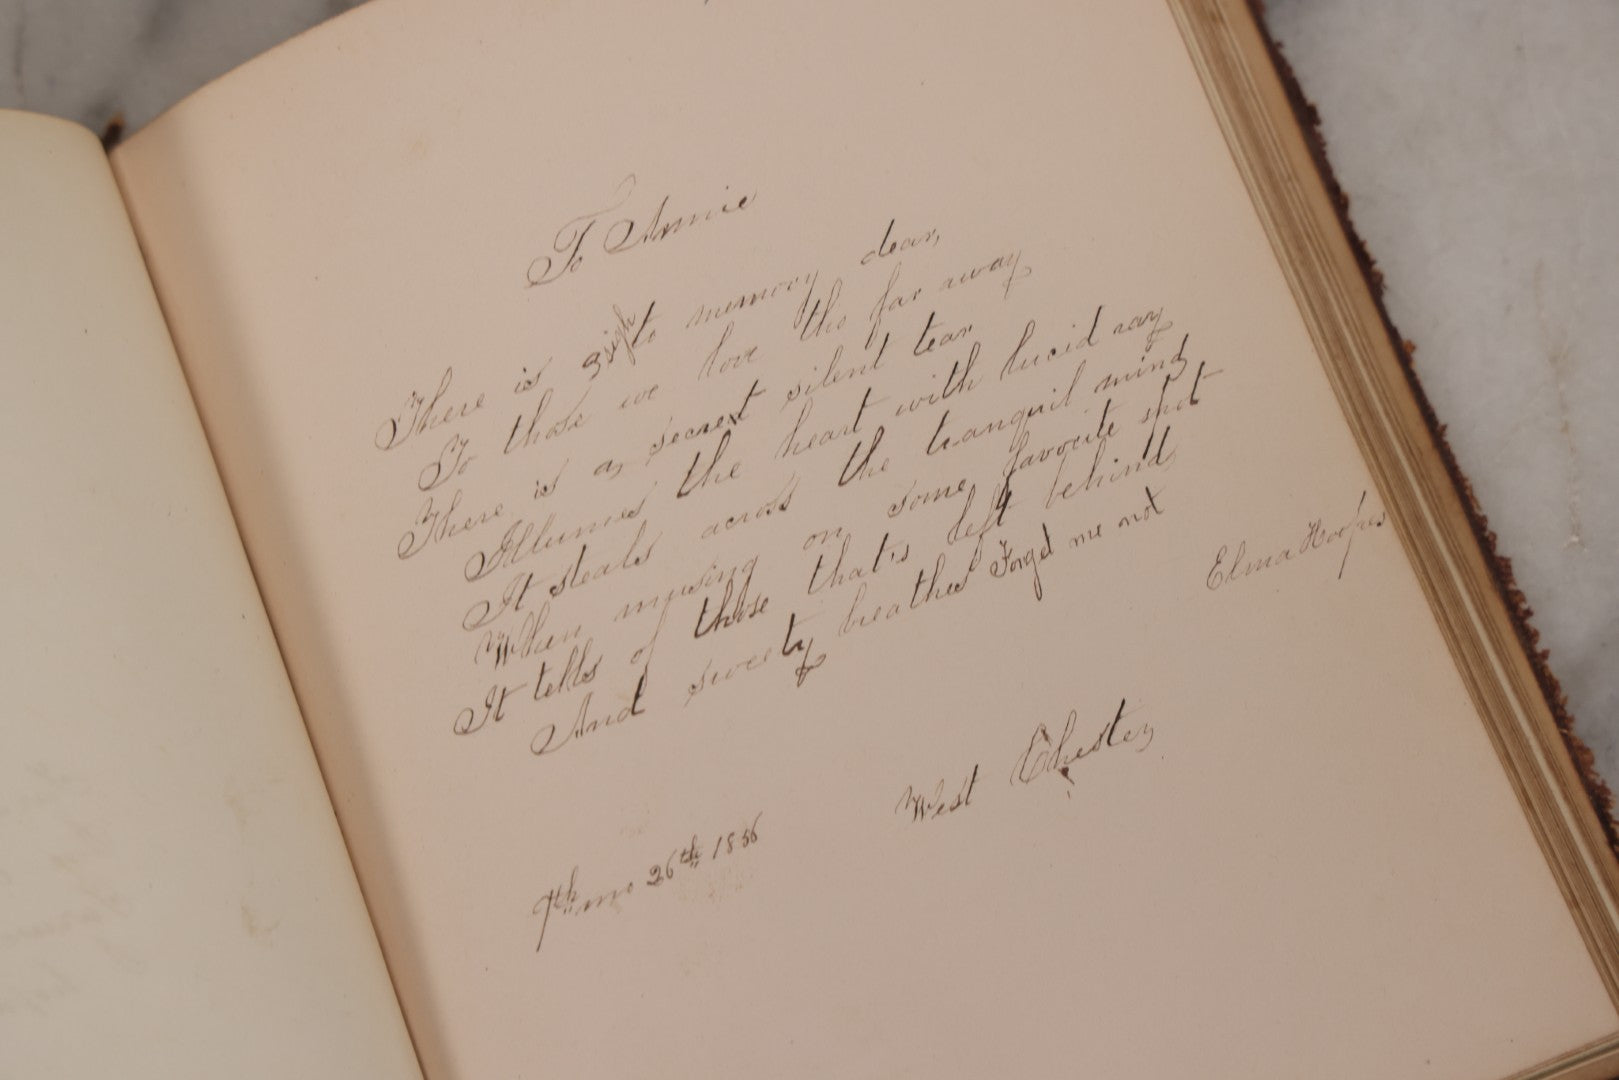 To Annie
There is a sigh to memory dear,
To those we love tho far away
There is a, secret silent tear
Illumes the heart with lucid ray
It steals across the tranquil mind
When musing on some favorite spot
It tells of those that's left behind
And sweetly breathes Forget me not
Elma Hoopes
West Chester
7th mo 26th 1856